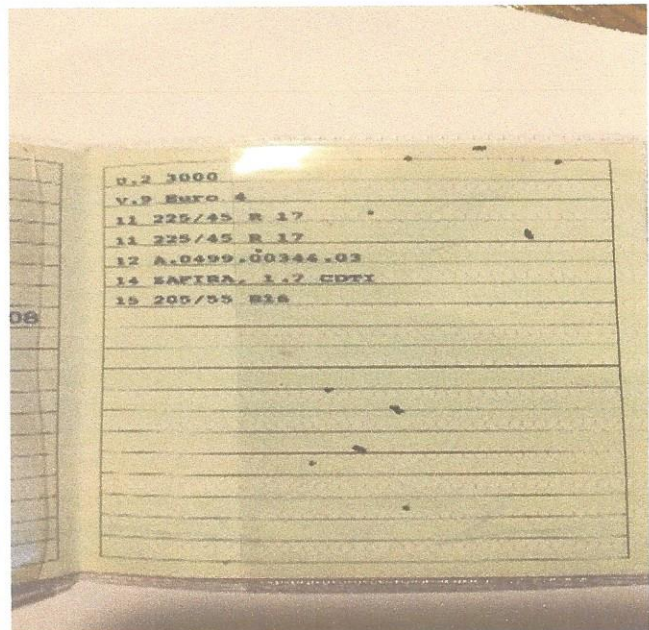 U.2 3000
V.9 Euro 4
11 225/45 R 17
11 225/45 R 17
12 A.0499.00344.03
14 ZAFIRA, 1.7 CDTI
15 205/55 R16
08